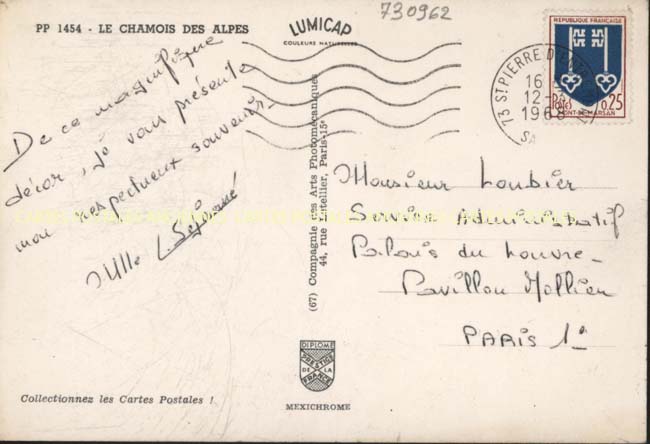 PP 1454 - LE CHAMOIS DES ALPES
LUMICAP
COULEURS NATURELLES
730962
REPUBLIQUE FRANÇAISE
Postes
0,25
MONT-DE-MARSAN
73 ST PIERRE D'
16
12-
1968
SA
De ce magnifique
décor, je vous présente
mon respectueux souvenir.
Mlle L.
(67) Compagnie des Arts Photomécaniques
44, rue Letellier, Paris-15e
Monsieur Loubier
Service Administratif
Palais du Louvre -
Pavillon Mollien
PARIS 1e
DIPLOME
PRESTIGE
DE LA
FRANCE
MEXICHROME
Collectionnez les Cartes Postales !